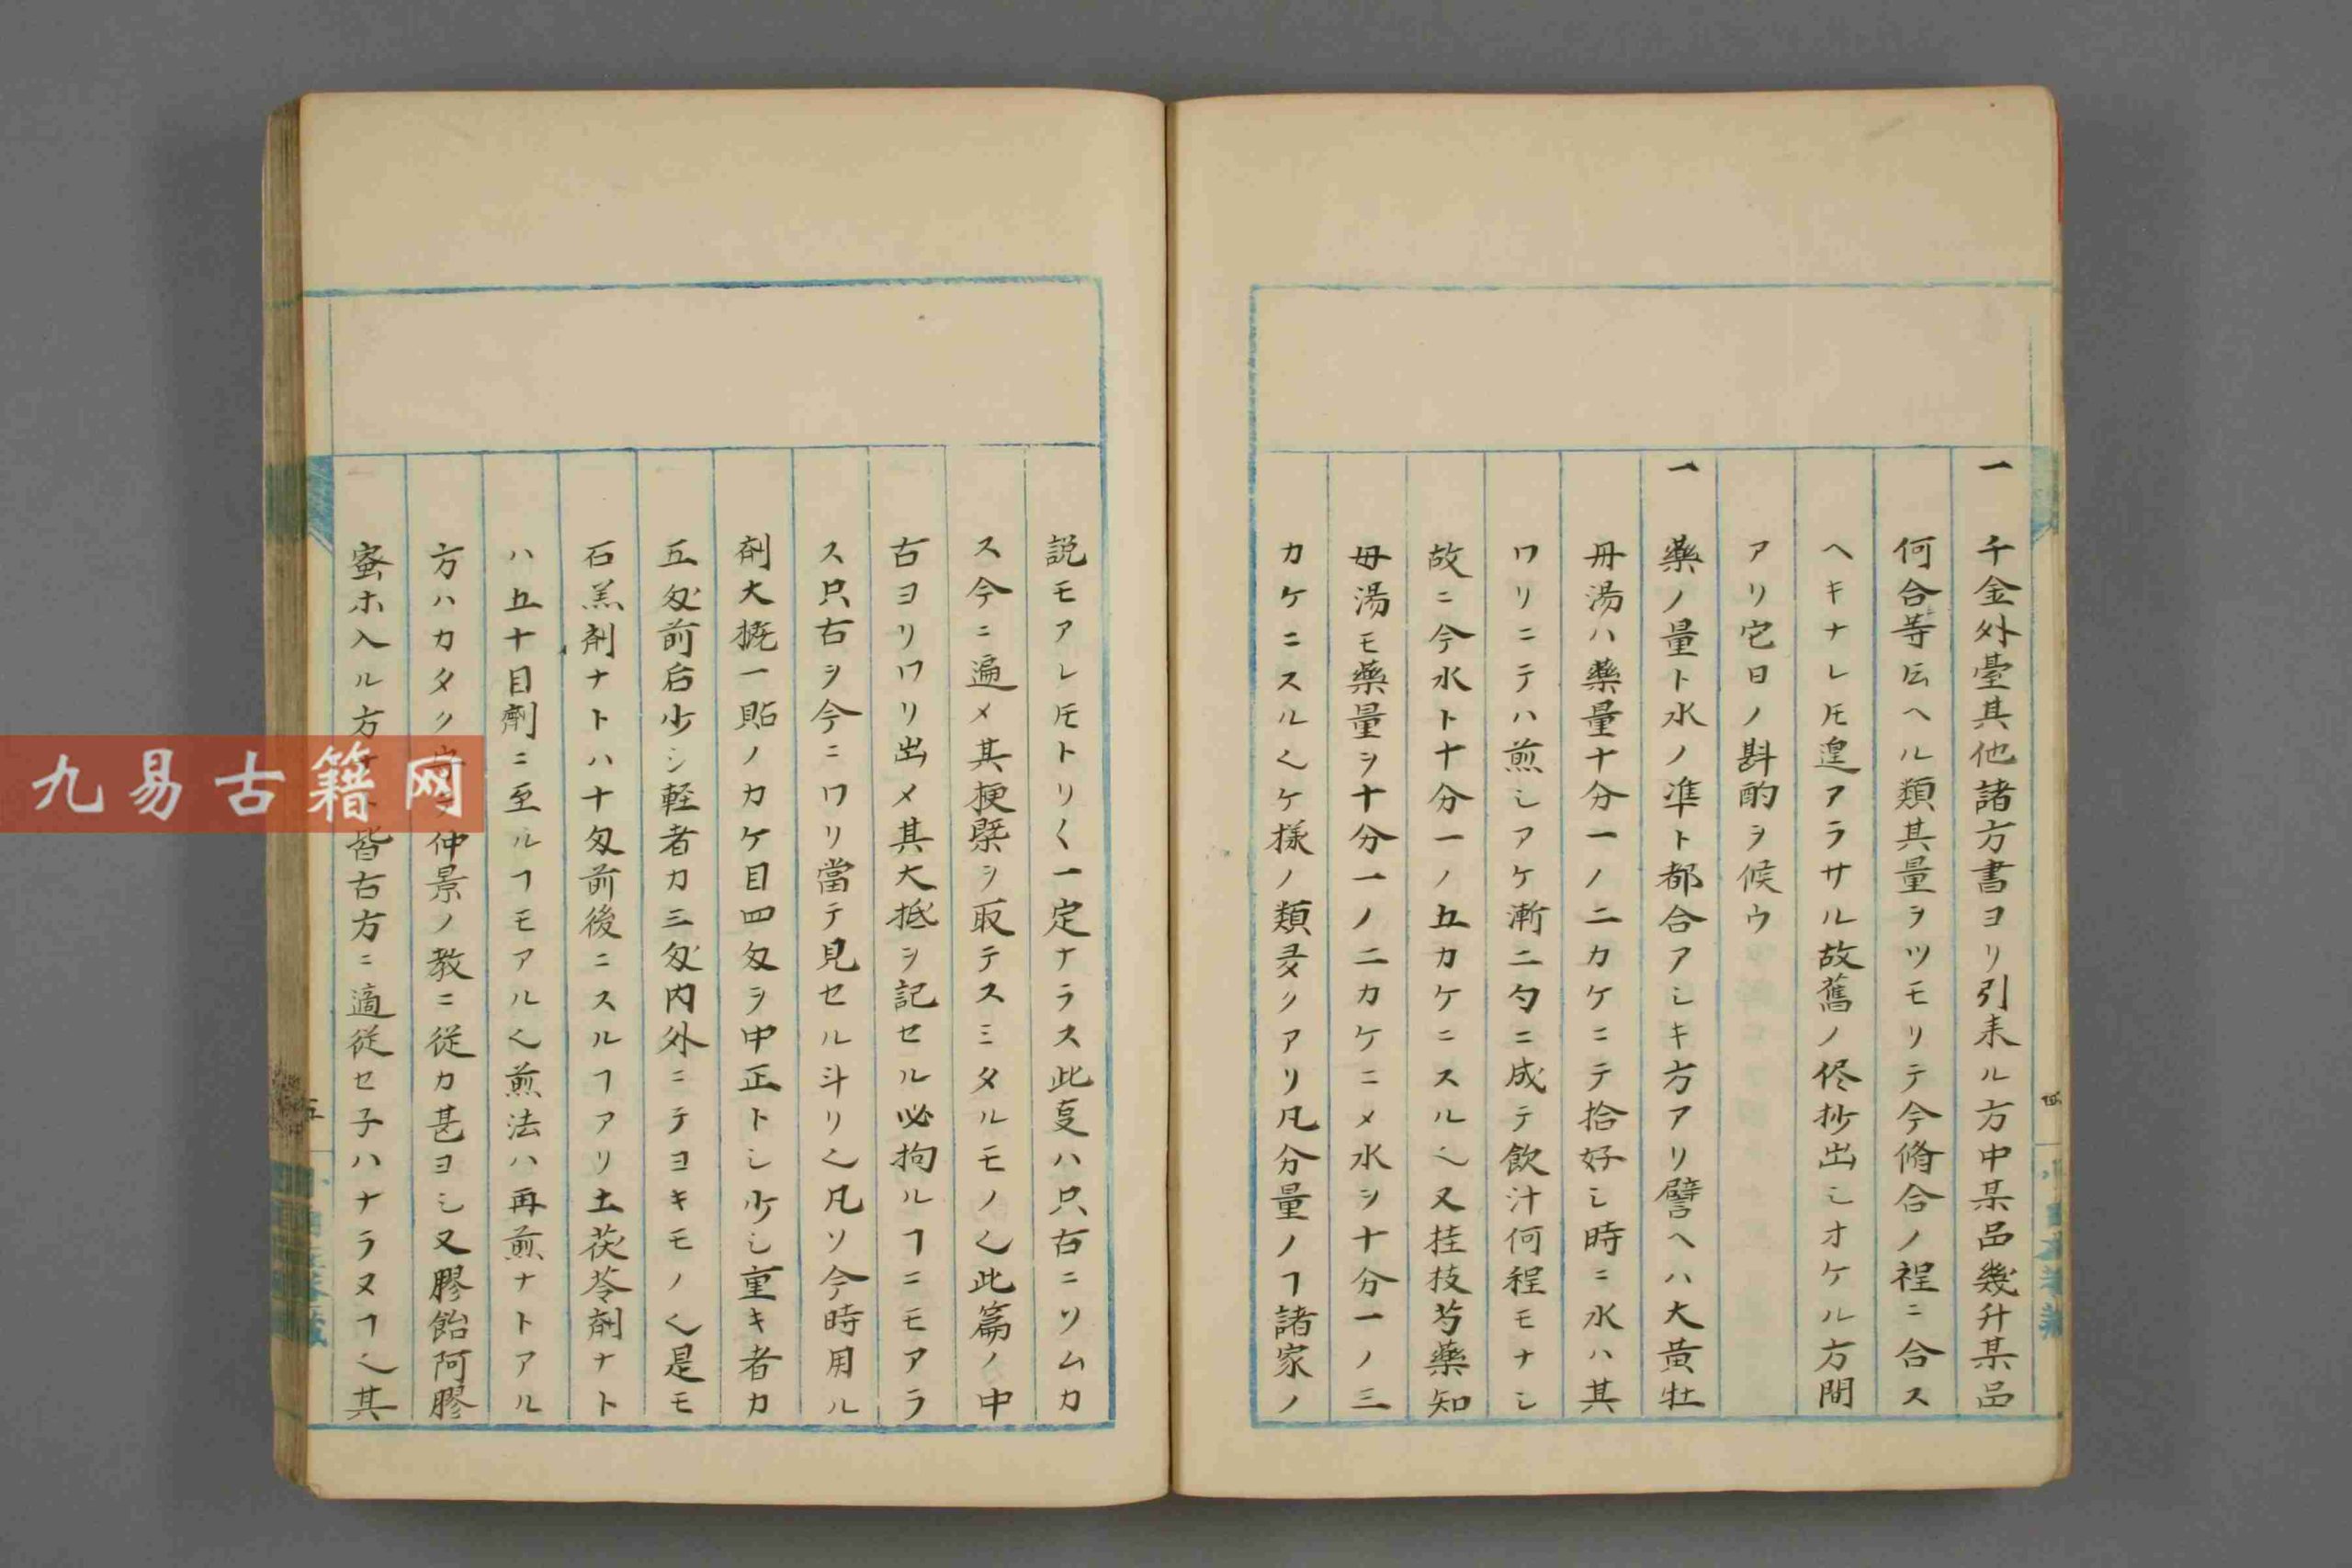 一 千金外臺其他諸方書ヨリ引来ル方中某品幾升某品
何合等云ヘル類其量ヲツモリテ今脩合ノ程ニ合ス
ヘキナレ𪜈遑アラサル故舊ノ侭抄出シオケル方間
アリ它日ノ斟酌ヲ候ウ
一 藥ノ量ト水ノ準ト都合アシキ方アリ譬ヘハ大黄牡
丹湯ハ藥量十分一ノ二カケニテ拾好シ時ニ水ハ其
ワリニテハ煎シアケ漸ニ勺ニ成テ飲汁何程モナシ
故ニ今水ト十分一ノ五カケニスル𬼀又桂枝芍藥知
母湯モ藥量ヲ十分一ノ二カケニメ水ヲ十分一ノ三
カケニスル𬼀ケ様ノ類夛クアリ凡分量ノヿ諸家ノ
説モアレ𪜈トリ〱一定ナラス此叓ハ只古ニソムカ
ス今ニ遍メ其梗槩ヲ取テスミタルモノ𬼀此篇ノ中
古ヨリワリ出メ其大抵ヲ記セル必拘ルヿニモアラ
ス只古ヲ今ニワリ當テ見セル斗リ𬼀凡ソ今時用ル
剤大槪一貼ノカケ目四匁ヲ中正トシ少シ重キ者カ
五匁前后少シ軽者カ三匁内外ニテヨキモノ𬼀是モ
石羔剤ナトハ十匁前後ニスルヿアリ土茯苓剤ナト
ハ五十目劑ニ至ルヿモアル𬼀煎法ハ再煎ナトアル
方ハカタク仲景ノ教ニ従カ甚ヨシ又膠飴阿膠
蜜ホ入ル方皆古方ニ適従セ子ハナラヌヿ𬼀其
四
五
九易古籍网